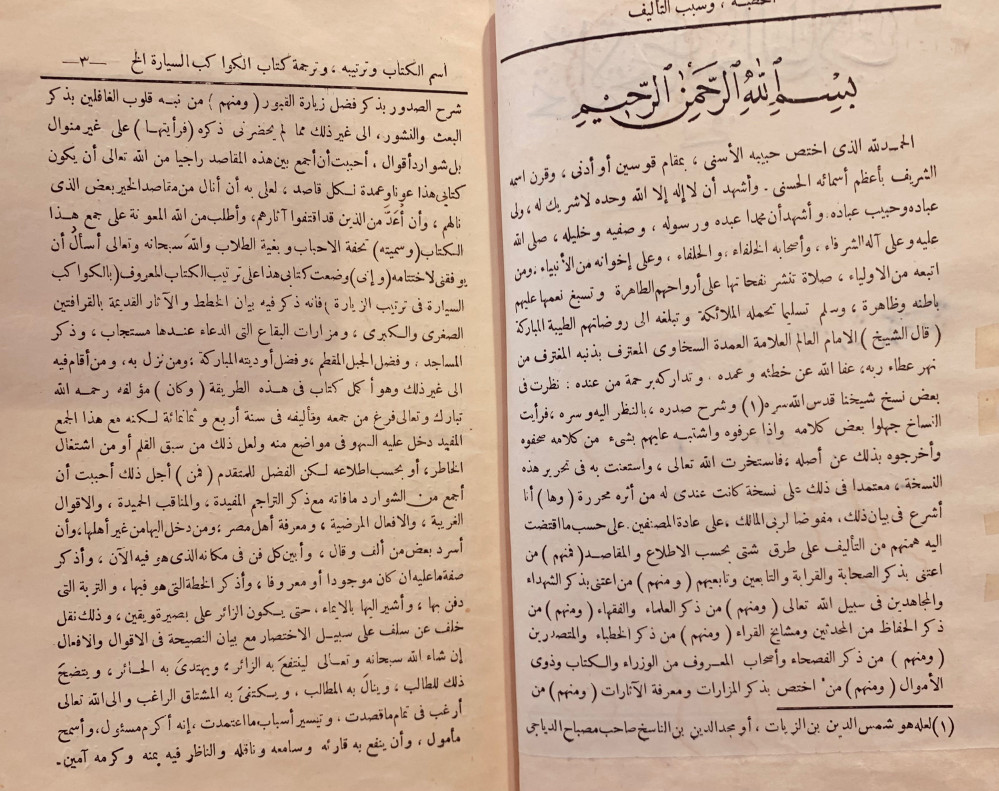 الخطبة ، وسبب التأليف
بسم الله الرحمن الرحيم
الحمـدلله الذى اختص حبيبه الأسنى ، بمقام قوسين أو أدنى ، وقرن اسمه
الشريف بأعظم أسمائه الحسنى . وأشهد أن لا إله إلا الله وحده لاشريك له ، ولى
عباده وحبيب عباده . وأشهد أن محمدا عبده ورسوله ، وصفيه وخليله ، صلى الله
عليه وعلى آله الشرفاء ، وأصحابه الخلفاء ، والحلفاء ، وعلى إخوانه من الأنبياء ، ومن
اتبعه من الاولياء ، صلاة تنشر نفحاتها على أرواحهم الطاهرة وتسبغ نعمها عليهم
باطنه وظاهرة ، وسلم تسليما تحمله الملائكة وتبلغه الى روضاتهم الطيبة المباركة
( قال الشيخ ) الامام العالم العلامة العمدة السخاوى المعترف بذنبه المغترف من
نهر عطاء ربه ، عفا الله عن خطئه وعمده . وتداركه برحمة من عنده : نظرت فى
بعض نسخ شيخنا قدس الله سره (١) وشرح صدره ، بالنظر اليه وسره ، فرأيت
النساخ جهلوا بعض كلامه واذا عرفوه واشتبـه عليهم بشىء من كلامه صحفوه
وأخرجوه بذلك عن أصله ، فاستخرت الله تعالى ، واستعنت به فى تحرير هذه
النسخة ، معتمدا فى ذلك على نسخة كانت عندى له من أثره محررة ( وها ) أنا
أشرع فى بيان ذلك ، مفوضا لربى المالك ، على عادة المصنفين . على حسب ما اقتضت
اليه هممهم من التأليف على طرق شتى بحسب الاطلاع و المقاصـد ( فمنهم ) من
اعتنى بذكر الصحابة والقرابة و التابعين وتابعيهم ( ومنهم ) من اعتنى بذكر الشهداء
والمجاهدين فى سبيل الله تعالى ( ومنهم ) من ذكر العلماء والفقهاء ( ومنهم ) من
ذكر الحفاظ من المحدثين ومشايخ القراء ( ومنهم ) من ذكر الخطباء والمتصدرين
( ومنهم ) من ذكر الفصحاء وأصحاب المعـروف من الوزراء والـكتاب وذوى
الأموال ( ومنهم ) من اختص بذكر المزارات ومعرفة الآثارات ( ومنهم ) من
(١) لعله هو شمس الدين بن الزيات ، أو مجد الدين بن الناسخ صاحب مصباح الدياجى
اسم الكتاب وترتيبه ، وترجمة كتاب الكواكب السيارة الخ —٣—
شرح الصدور بذكر فضل زيارة القبور ( ومنهم ) من نبـه قلوب الغافلين بذكر
البعث والنشور ، الى غير ذلك مما لم يحضرنى ذكره ( فرأيتهـا ) على غير منوال
بل شوارد أقوال ، أحببت أن أجمع بين هذه المقاصد راجيا من الله تعالى أن يكون
كتابى هذا عونا وعمدة لـكل قاصد ، لعلى به أن أنال من مقاصد الخير بعض الذى
نالهم ، وأن أعَدَّ من الذين قد اقتفوا آثارهم ، وأطلب من الله المعونة على جمع هـذا
الـكتاب ( وسميته ) تحفة الاحباب وبغية الطلاب والله سبحانه وتعالى أسألُ أن
يوفقنى لاختتامه ( و إنى ) وضعت كتابى هذا على ترتيب الكتاب المعروف ( بالكواكب
السيارة فى ترتيب الزيارة ) فانه ذكر فيه بيان الخطط و الآثار القديمة بالقرافتين
الصغرى والـكبرى ، ومزارات البقاع التى الدعاء عنـدها مستجاب ، وذكر
المساجد . وفضل الجبل المقطم ، وفضل أوديته المباركة ، ومن نزل به ، ومن أقام فيه
الى غير ذلك وهو أكمل كتاب فى هـذه الطريقة ( وكان ) مؤلفه رحمـه الله
تبارك وتعالى فرغ من جمعه وتأليفه فى سنة أربع وثمانمائة لـكنه مع هذا الجمع
المفيد دخل عليه السهو فى مواضع منه ولعل ذلك من سبق القلم أو من اشتغال
الخاطر ، أو بحسب اطلاعه لـكن الفضل للمتقدم ( فمن ) أجل ذلك أحببت أن
أجمع من الشوارد مافاته مع ذكر التراجم المفيدة ، والمناقب الحميدة ، والاقوال
الغريبة ، والافعال المرضية ، ومعرفة أهل مصر ، ومن دخل اليها من غير أهلها ، وأن
أسرد بعض من ألف وقال ، وأبين كل فن فى مكانه الذى هو فيه الآن ، وأذكر
صفة ما عليه ان كان موجودا أو معروفا ، وأذكر الخطة التى هو فيها ، و التربة التى
دفن بها ، وأشير اليها بالايماء ، حتى يـكون الزائر على بصيرة ويقين ، وذلك نقل
خلف عن سلف على سبيـل الاختصار مع بيان النصيحة فى الاقوال والافعال
إن شاء الله سبحانه وتعـالى لينتفعَ به الزائر ؛ ويهتدىَ به الحـائر ، ويتضحَ
ذلك للطالب ، وينالَ به المطالب ، ويـكتفىَ به المشتاق الراغب والى الله تعالى
أرغب فى تمام ما قصدت ، وتيسير أسباب ما اعتمدت ، إنه أكرم مسئول ، وأسمح
مأمول ، وأن ينفع به قارئه وسامعه وناقله والناظر فيه بمنه وكرمه آمين .